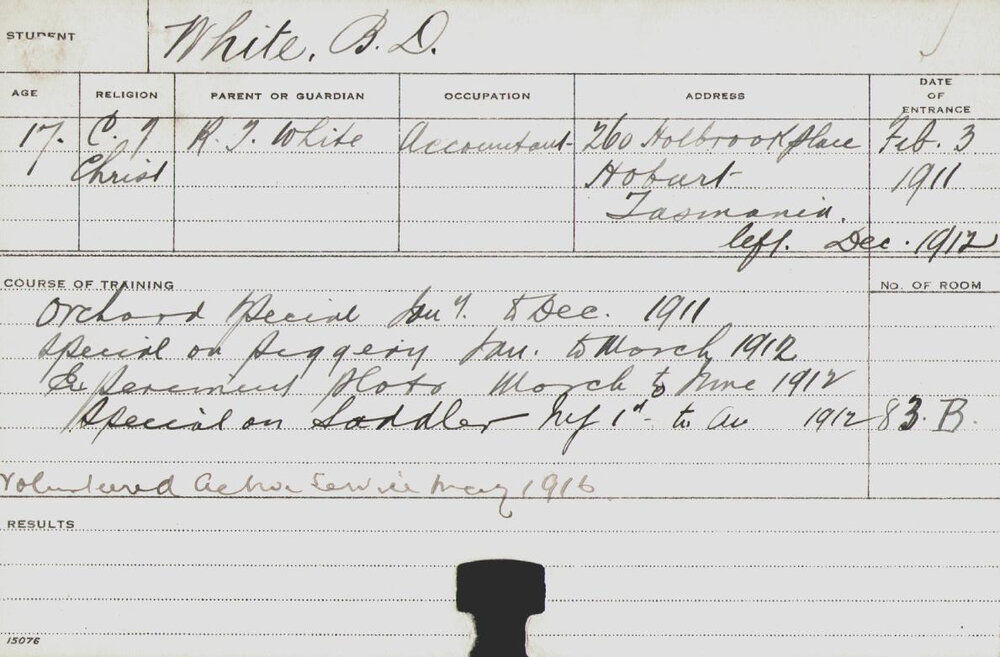 STUDENT White, B. D.
AGE RELIGION PARENT OR GUARDIAN OCCUPATION ADDRESS DATE OF ENTRANCE
17. C. of R. J. White Accountant 260 Holbrook place Feb. 3
Christ Hobart 1911
Tasmania.
left. Dec. 1912
COURSE OF TRAINING NO. OF ROOM
Orchard Special Jany. to Dec. 1911
Special on piggery Jan. to March 1912
Experiment Plots March to June 1912
Special on Saddler 1st to 1912 83. B.
Volunteered Active Service May 1916
RESULTS
15076